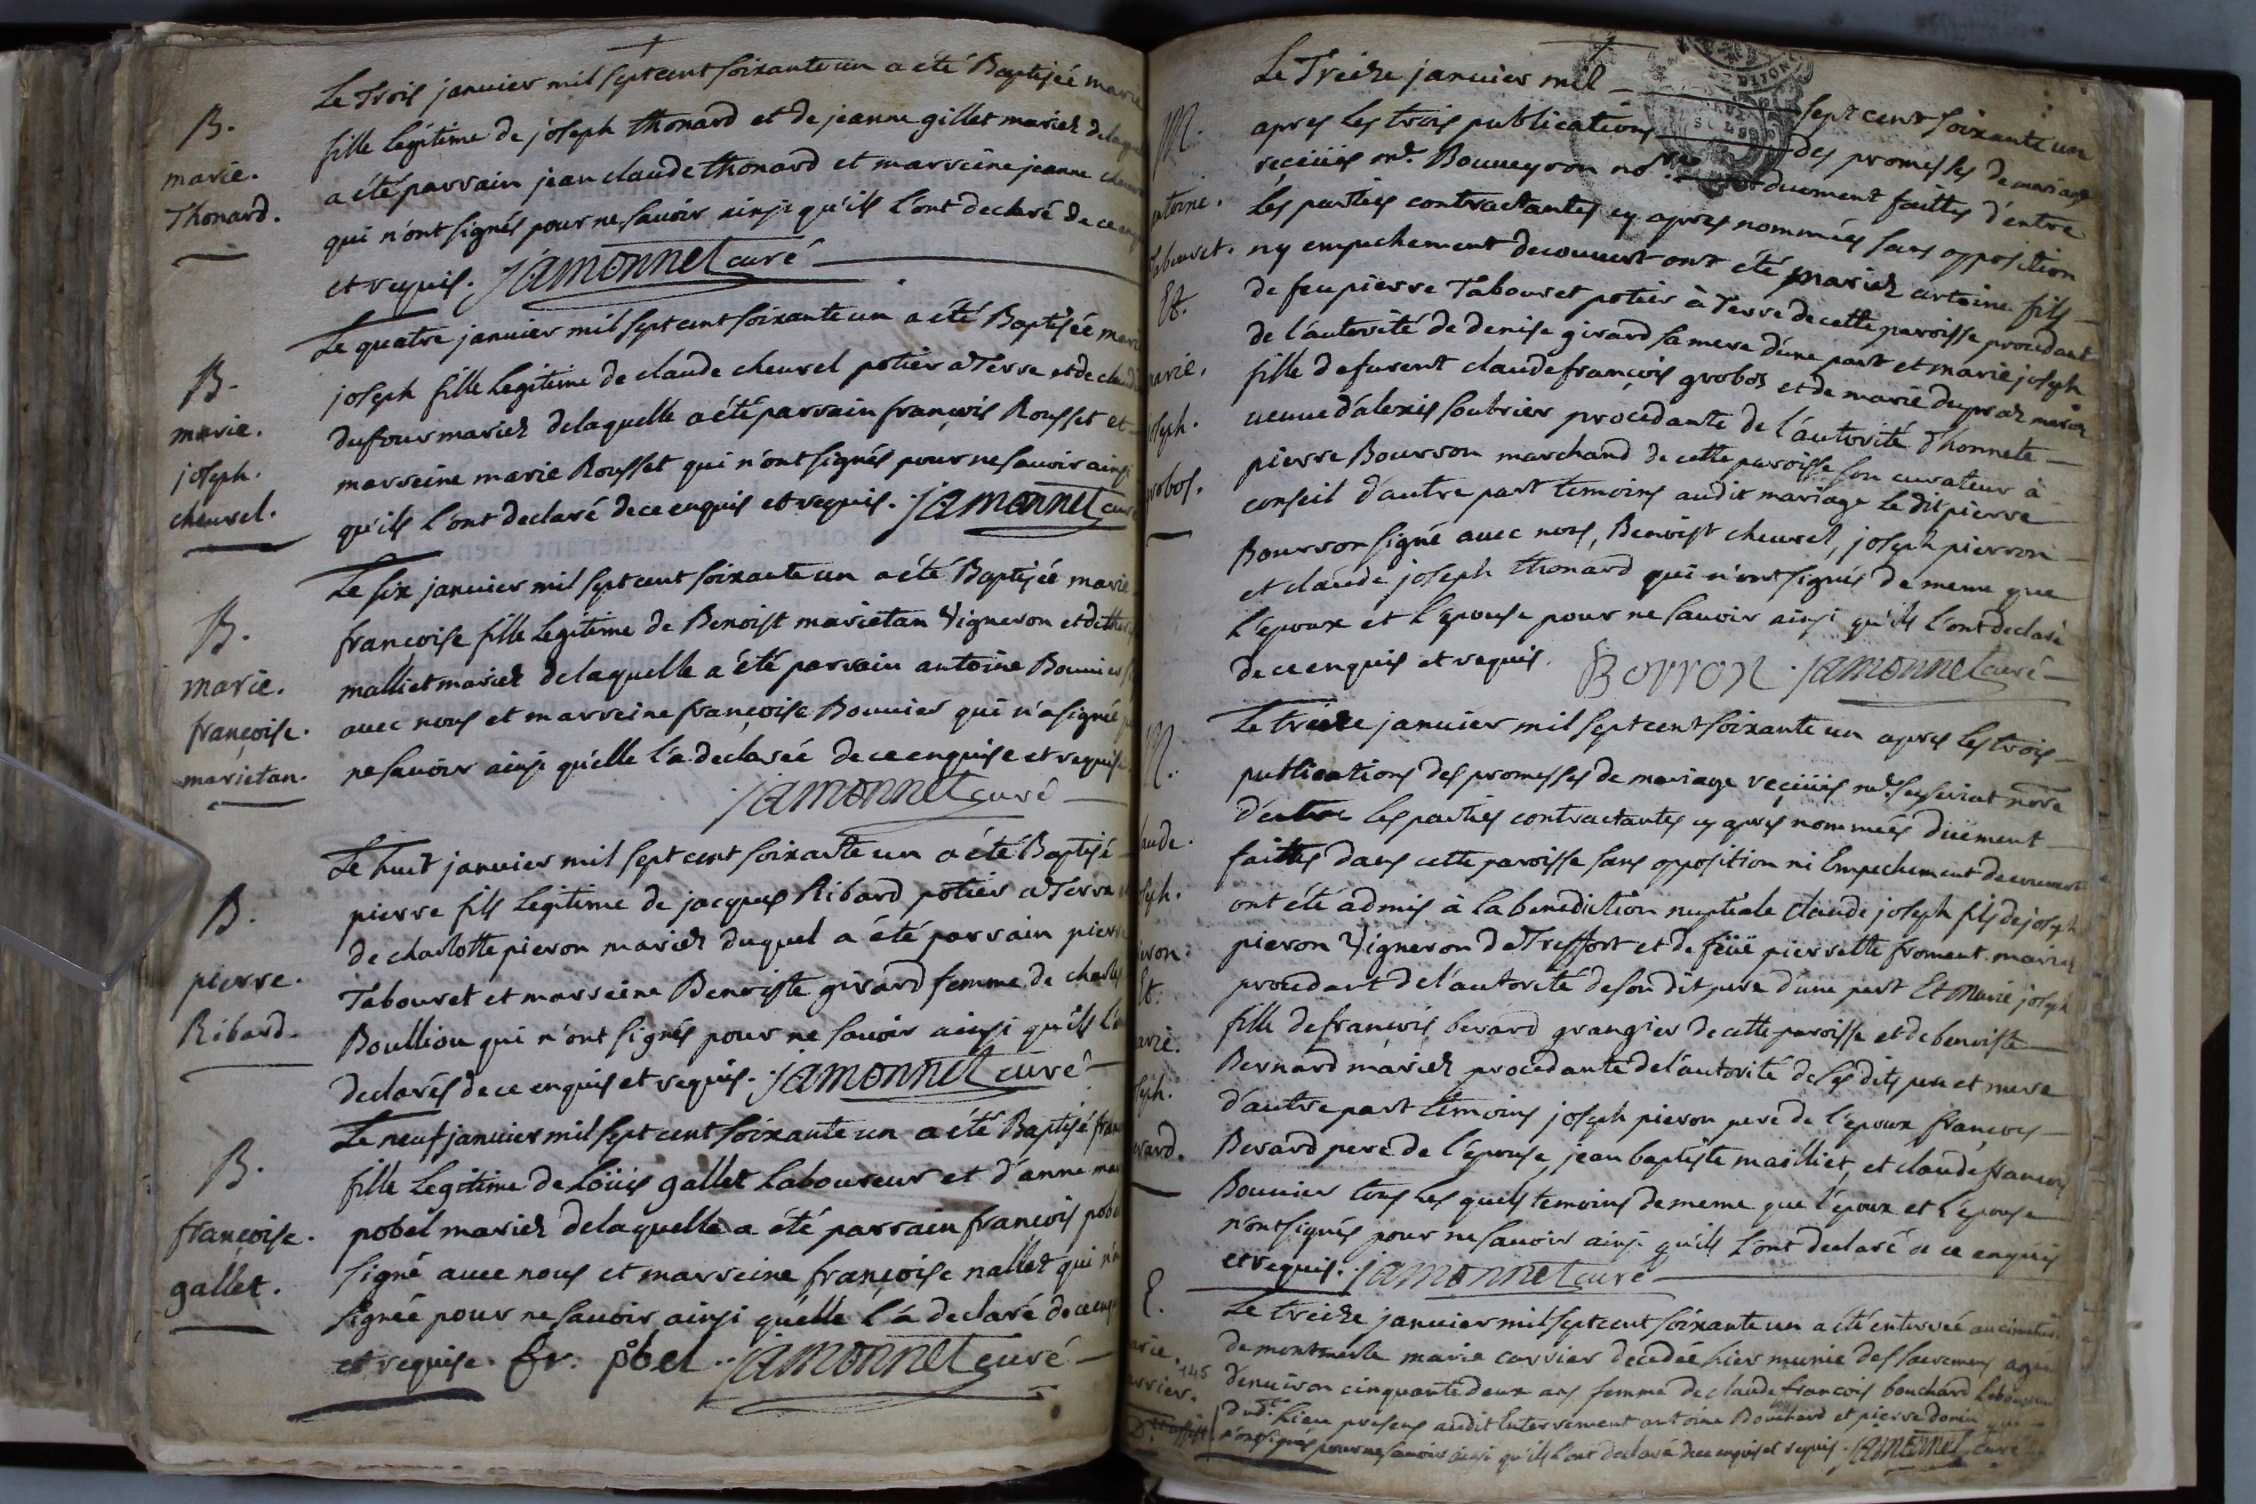 B.
marie.
Thonard.
Le Trois janvier mil sept cent soixante un a été Baptisée marie
fille legitime de joseph thonard et de jeanne gillet mariez delaquelle
a été parrain jean claude thonard et marreine jeanne
qui n'ont signés pour ne savoir ainsi qu'ils l'ont declaré de ce enquis
et requis. jamonnet curé
B.
marie.
joseph.
cheurel.
Le quatre janvier mil sept cent soixante un a été Baptisée marie
joseph fille legitime de claude cheurel potier a Terre et de
dufour mariez delaquelle a été parrain françois Rousset et
marreine marie Rousset qui n'ont signés pour ne savoir ainsi
qu'ils l'ont declaré de ce enquis et requis. jamonnet curé
B.
marie.
françoise.
marietan.
Le six janvier mil sept cent soixante un a été Baptisée marie
françoise fille legitime de Benoist marietan Vigneron et de
malliet mariez delaquelle a été parrain antoine Bouvier
avec nous et marreine françoise Bouvier qui n'a signée
ne savoir ainsi qu'elle l'a declarée de ce enquise et requise
jamonnet curé
B.
pierre.
Ribard.
Le huit janvier mil sept cent soixante un a été Baptisé
pierre fils legitime de jacques Ribard potier a Terre
de charlotte pieron mariez duquel a été parrain pierre
Tabouret et marreine Benoiste girard femme de charles
Boulliou qui n'ont signés pour ne savoir ainsi qu'ils l'ont
declarés de ce enquis et requis. jamonnet curé
B.
françoise.
gallet.
Le neuf janvier mil sept cent soixante un a été Baptisé
fille legitime de Loüis gallet Laboureur et d'anne
pobel mariez delaquelle a été parrain françois pobel
signé avec nous et marreine françoise nallet qui n'a
signée pour ne savoir ainsi quelle l'a declaré de ce
et requise. fr: pobel. jamonnet curé
M.
antoine.
Tabouret.
Et.
marie.
joseph.
grobos.
Le Treize janvier mil sept cent soixante un
apres les trois publications des promesses de mariage
reçüiies me. Bouveyron nore duement faittes d'entre
les parties contractantes cy apres nommées sans opposition
ny empechement decouvert ont été mariez antoine fils
de feu pierre Tabouret potier à Terre de cette paroisse procedant
de l'autorité de denise girard sa mere d'une part et marie joseph
fille de furent claude françois grobos et de marie dupraz mariez
veuve d'alexis soubrier procedante de l'autorité d'honnete
pierre Bourron marchand de cette paroisse son curateur à
conseil d'autre part temoins audit mariage Le dit pierre
Bourron signé avec nous, Benoist cheurel, joseph pierron
et claude joseph thonard qui n'ont signés de meme que
L'epoux et L'epouse pour ne savoir ainsi qu'ils l'ont declaré
de ce enquis et requis. Borron. jamonnet curé
M.
claude.
joseph.
pieron.
Et.
marie.
joseph.
bevard.
Le treize janvier mil sept cent soixante un apres les trois
publications des promesses de mariage reçüiies me. nore
d'entre les parties contractantes cy apres nommées düement
faittes dans cette paroisse sans opposition ni Empechement decouvert
ont été admis à la benediction nuptiale claude joseph fils de joseph
pieron Vigneron de Treffort et de feüe pierrette froment mariez
procedant de l'autorité de son dit pere d'une part Et Marie joseph
fille de françois bevard grangier de cette paroisse et de benoiste
Bernard mariez procedante de l'autorité de ses dits pere et mere
d'autre part temoins joseph pieron pere de l'epoux françois
Bevard pere de l'epouse, jean baptiste mailliet, et claude françois
Bouvier tous les quels temoins de meme que l'epoux et l'epouse
n'ont signés pour ne savoir ainsi qu'ils l'ont declaré de ce enquis
et requis. jamonnet curé
E.
marie.
carrier.
145
Le treize janvier mil sept cent soixante un a été enterrée au cimetiere
de montmerle marie carrier decedée hier munie des sacremens agée
d'environ cinquante deux ans femme de claude françois bouchard Laboureur
dudt. Lieu presens audit Enterrement antoine Bouchard et pierre donin que
n'ont signés pour ne savoir ainsi qu'ils l'ont declaré de ce enquis et requis. jamonnet curé